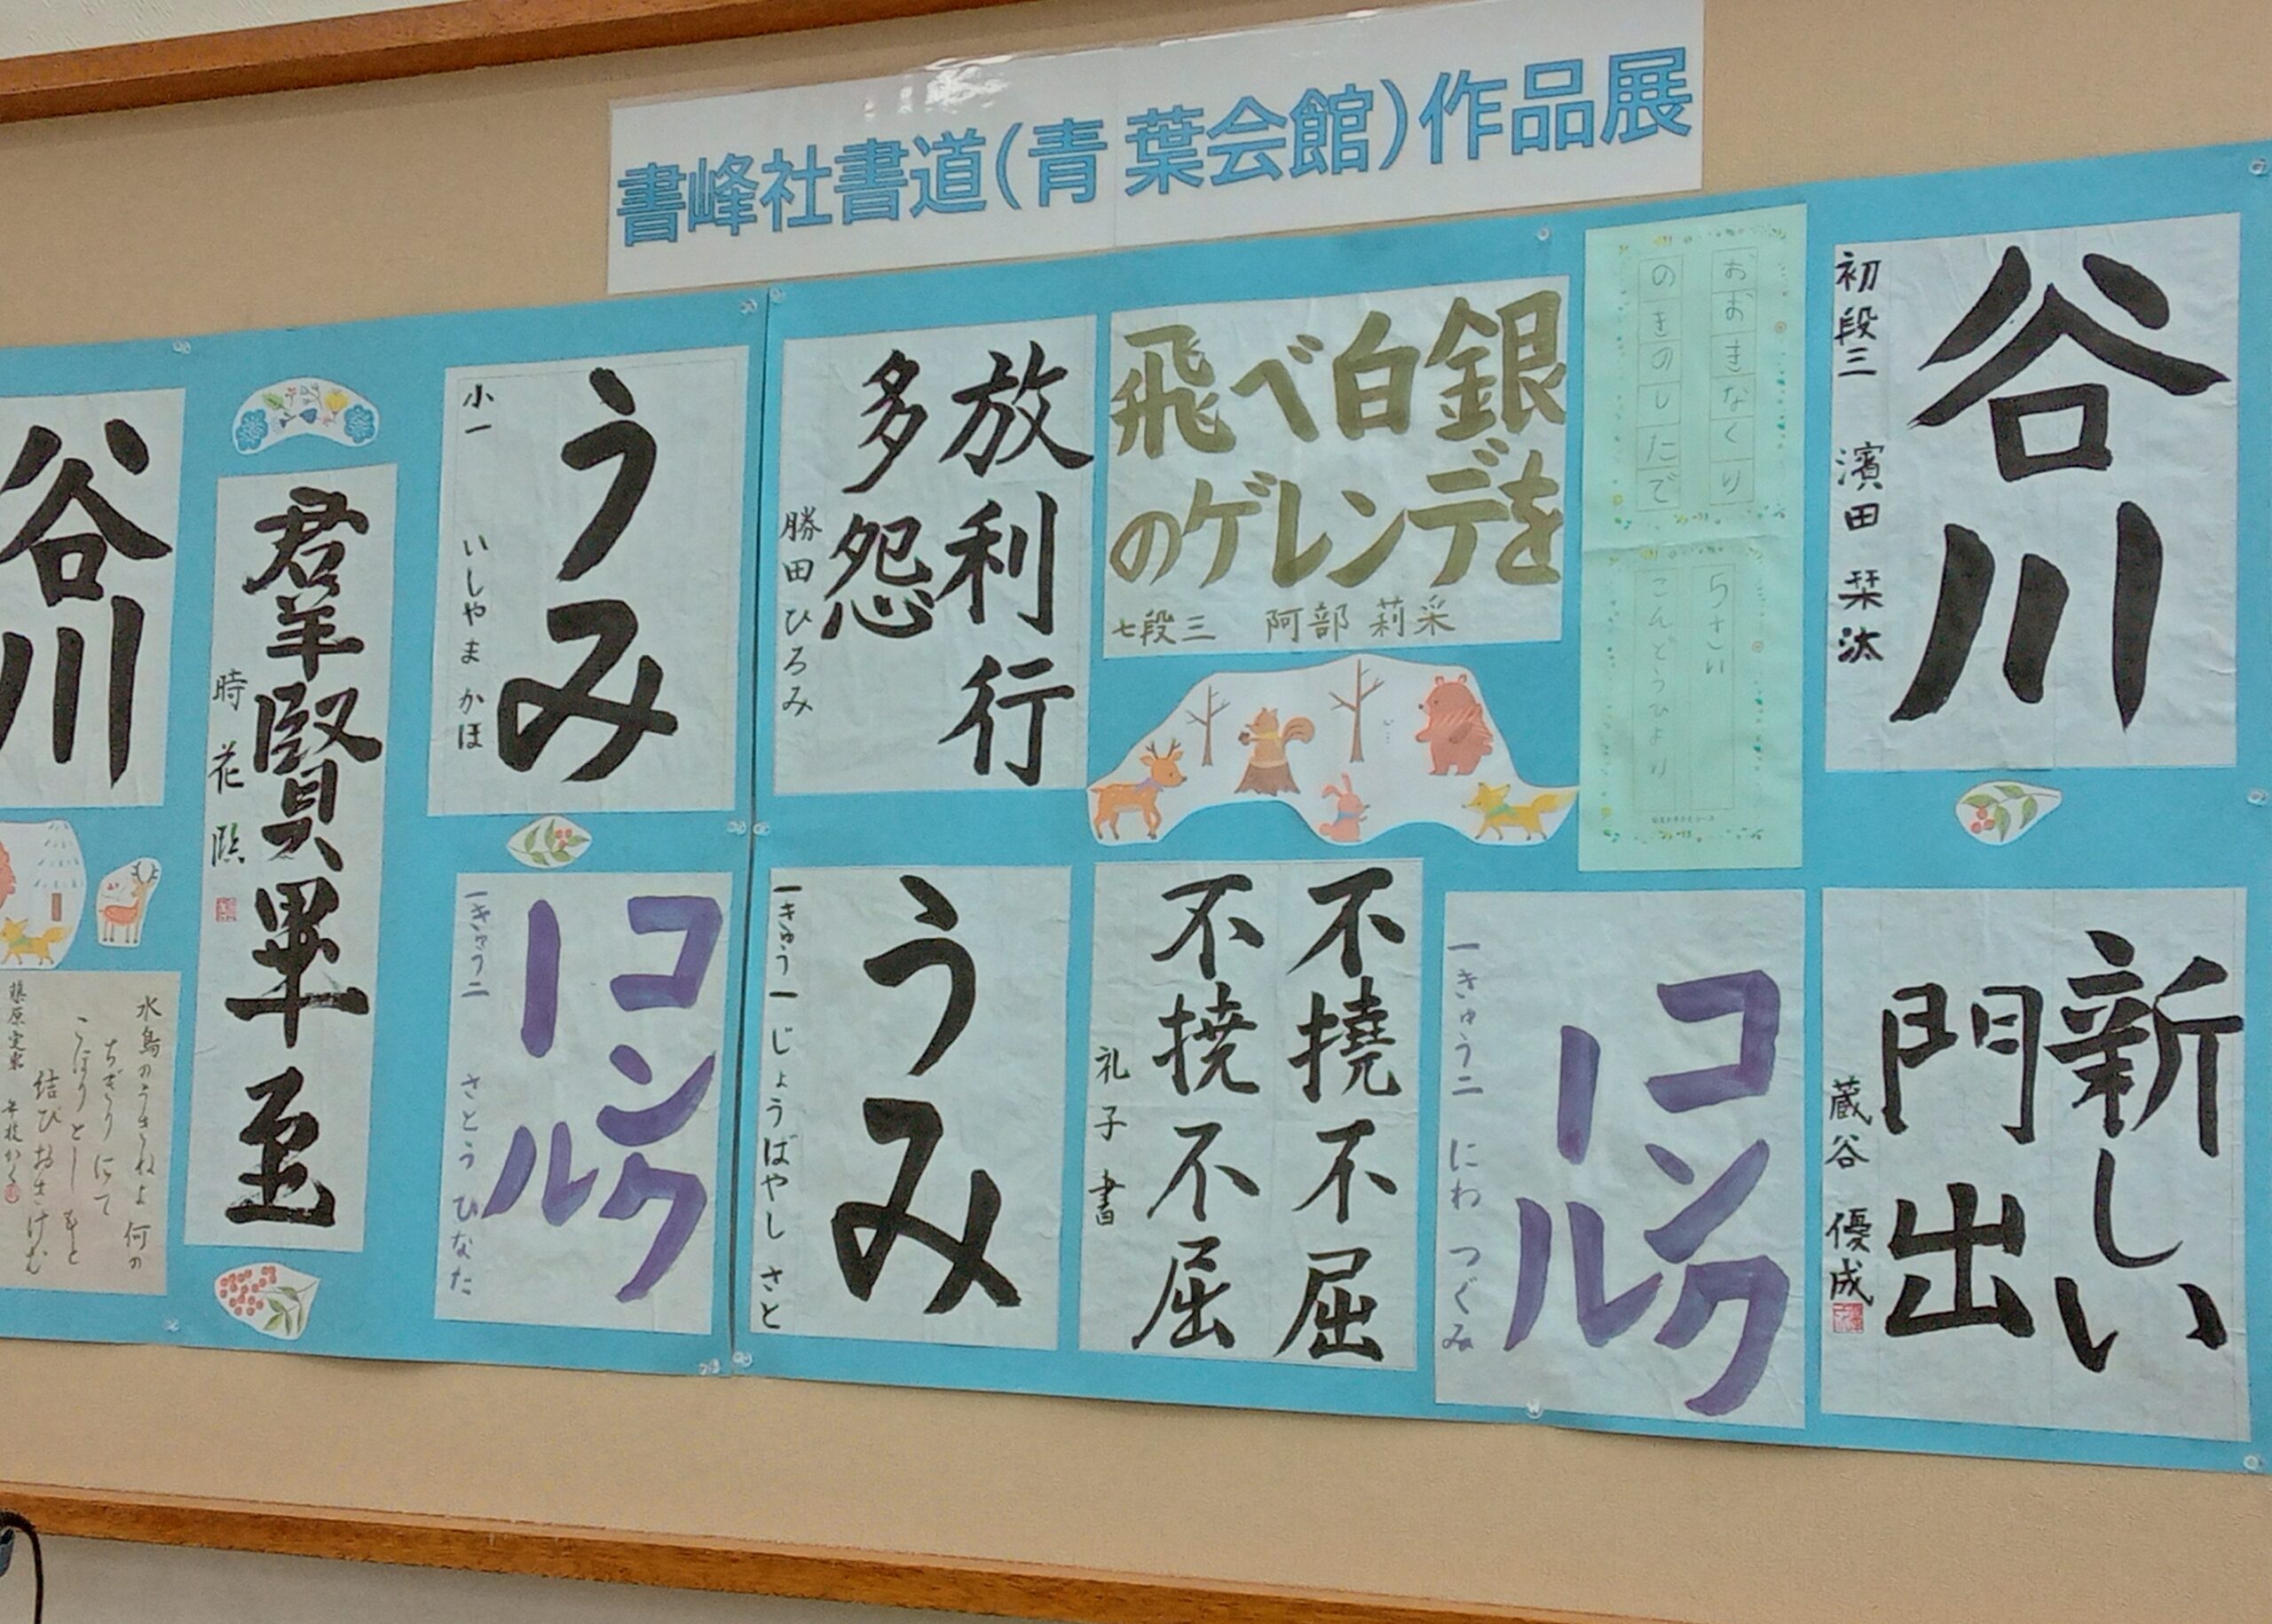 書峰社書道(青葉会館)作品展
谷川
初段三 濱田 栞汰
おおきなくり
のきのしたで
5さい
こんどうひより
飛べ白銀
のゲレンデを
七段三 阿部 莉采
放利行
多怨
勝田ひろみ
うみ
小一 いしやま かほ
群賢畢至
時花臨
谷川
新しい
門出
蔵谷 優成
コンク
ール
一きゅう二 にわ つぐみ
不撓不屈
不撓不屈
礼子書
うみ
一きゅう一 じょうばやし さと
コンク
ール
一きゅう二 さとう ひなた
水鳥のうきねよ何の
ちぎりにて
こほりとしもと
結びおきけむ